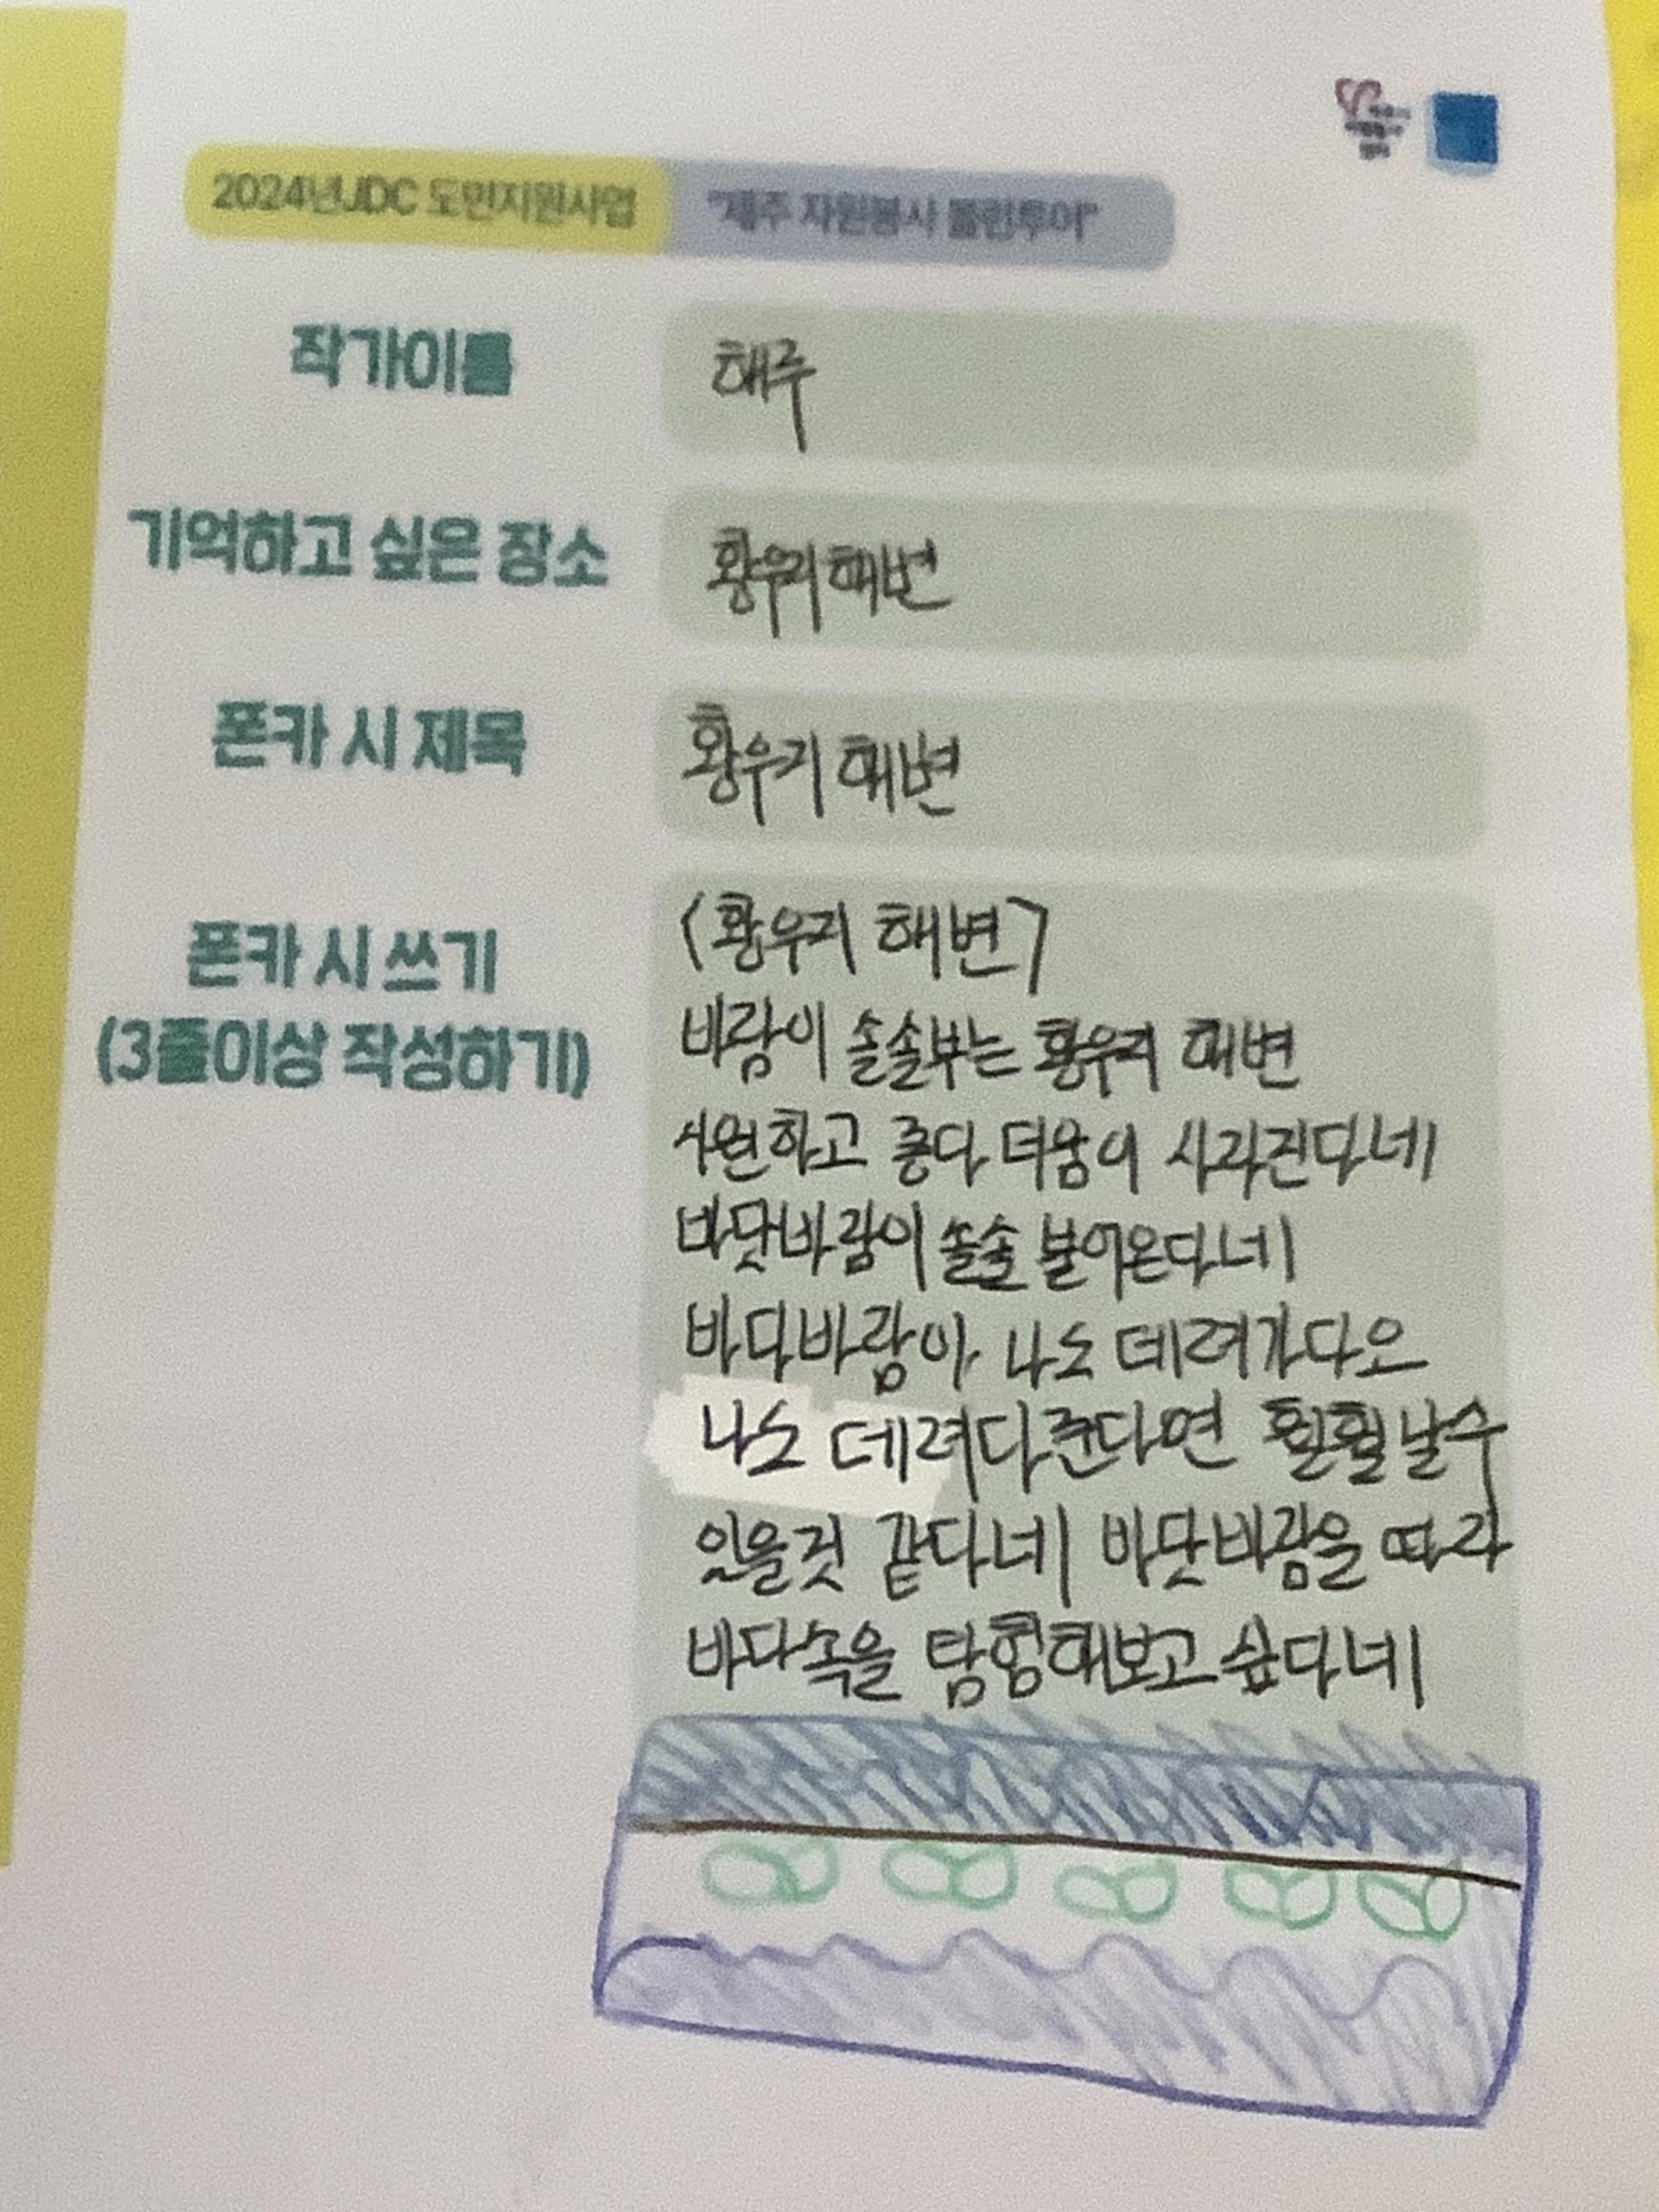 2024년JDC 도민지원사업 "제주 자원봉사 볼런투어"
작가이름 해주
기억하고 싶은 장소 황우지 해변
폰카 시 제목 황우지 해변
폰카 시 쓰기
(3줄이상 작성하기)
<황우지 해변>
바람이 솔솔부는 황우지 해변
시원하고 좋다 더움이 사라진다네
바닷바람이 솔솔 불어온다네
바다바람아 나도 데려가다오
나도 데려다준다면 훨훨날수
있을것 같다네 바닷바람을 따라
바다속을 탐험해보고 싶다네